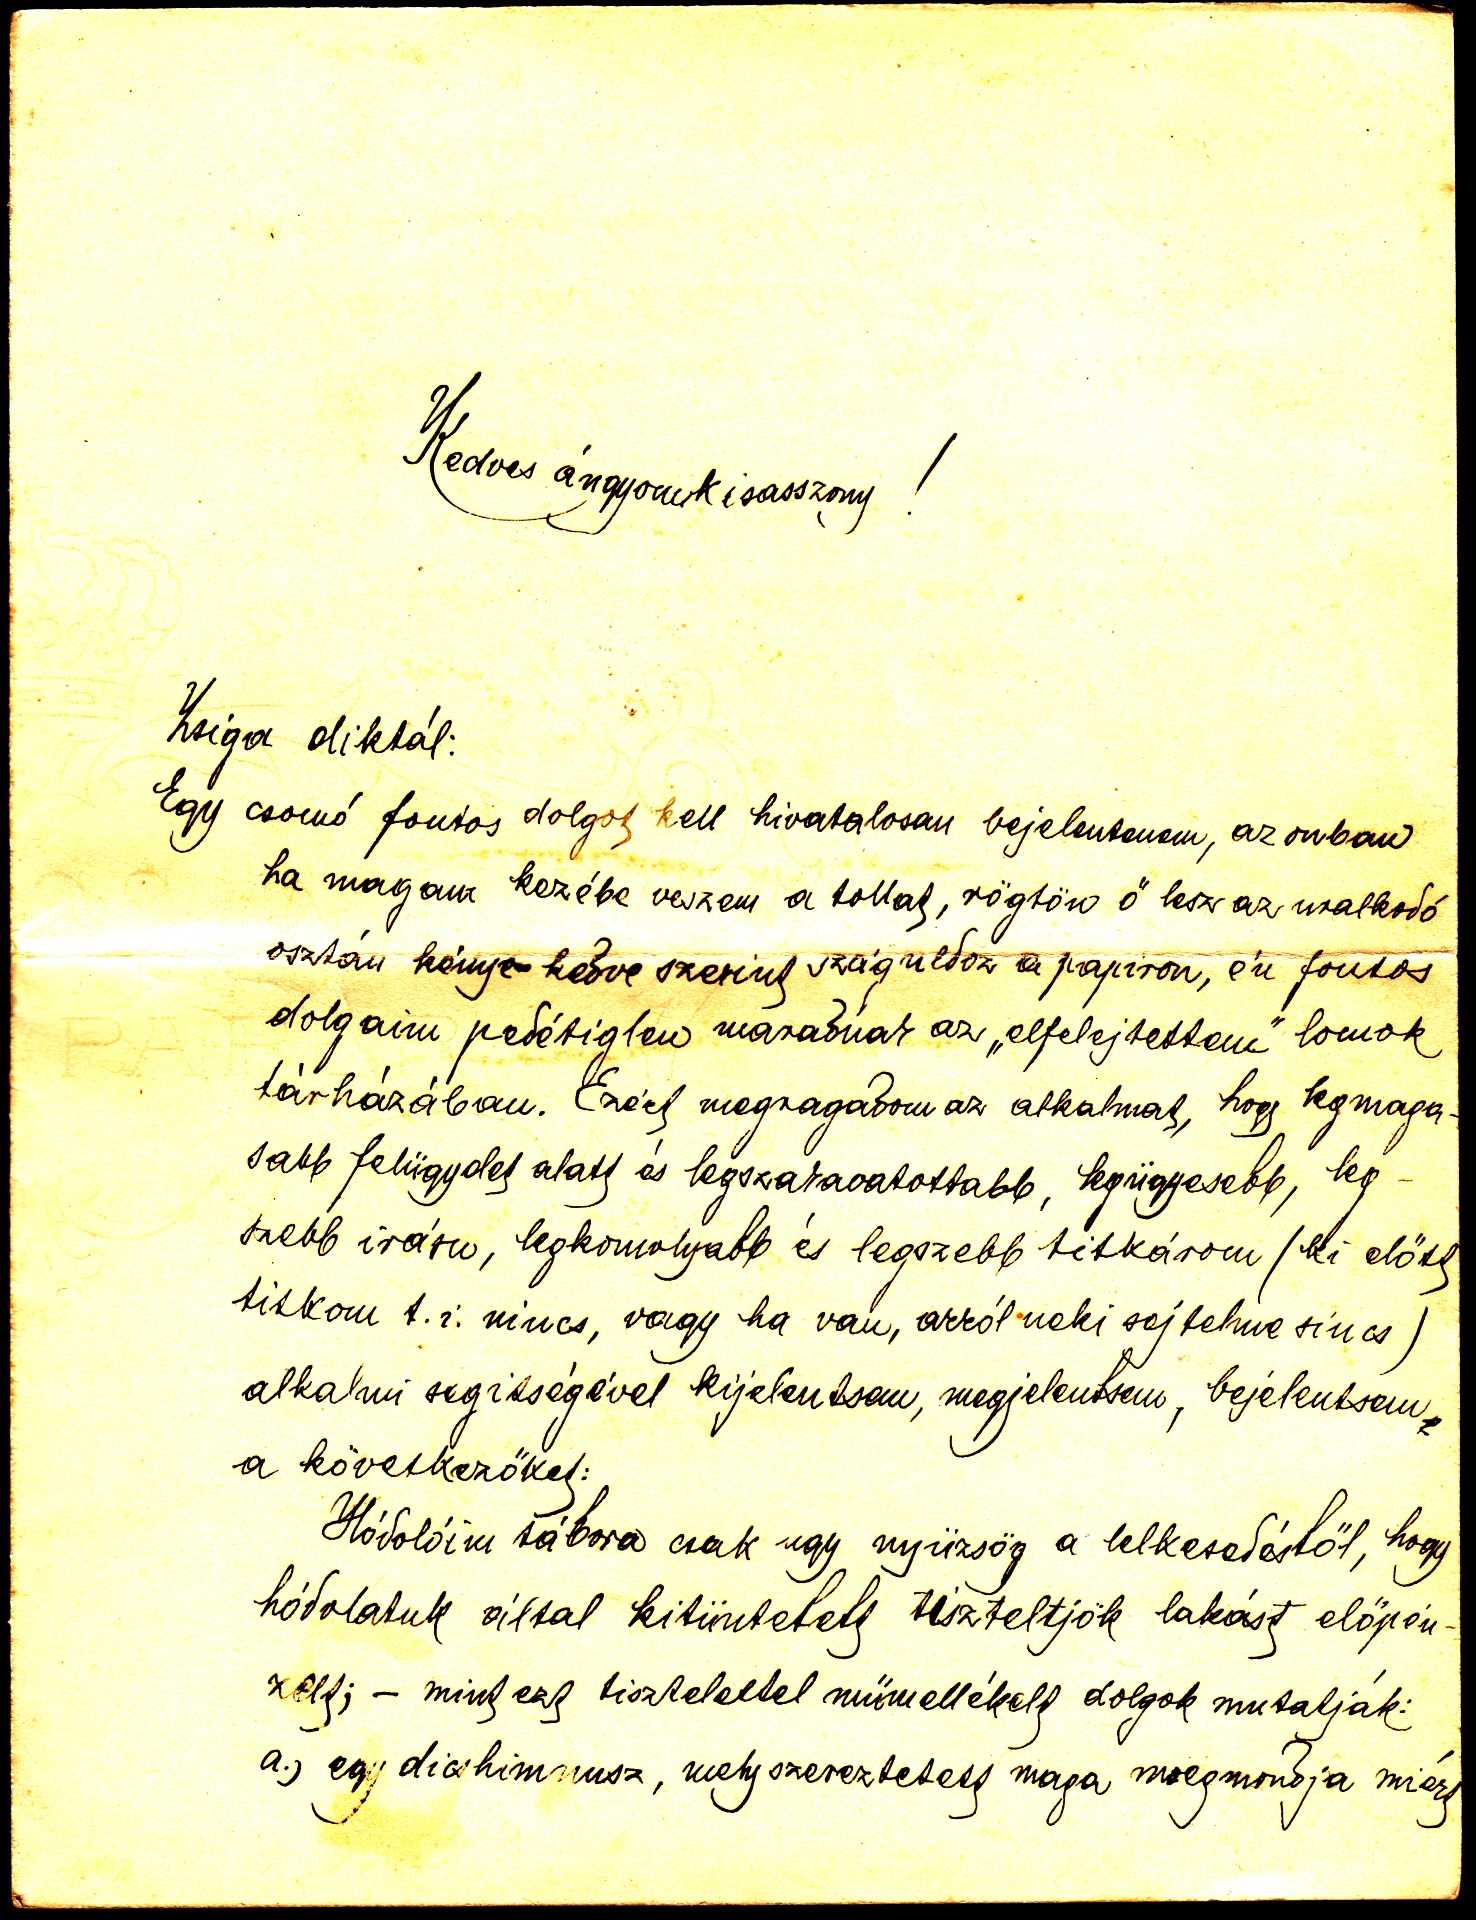 Kedves ángyomkisasszony!
Zsiga diktál:
Egy csomó fontos dolgot kell hivatalosan bejelentenem, azonban
ha magam kezébe veszem a tollat, rögtön ő lesz az uralkodó
osztán kénye kedve szerint száguldoz a papiron, én fontos
dolgaim pedétiglen maradnak az „elfelejtettem" lomok
tárházában. Ezért megragadom az alkalmat, hogy legmaga-
sabb felügyelet alatt és legszavatottabb, legügyesebb, leg-
szebb irásu, legkomolyabb és legszebb titkárom (ki előtt
titkom t. i. nincs, vagy ha van, arról neki sejtelme sincs)
alkalmi segitségével kijelentsem, megjelentsem, bejelentsem
a következőket:
Hódolóim tábora csak ugy nyüzsög a lelkesedéstől, hogy
hódolatuk által kitüntetett tiszteltjök lakást előpén-
zelt; – mint ezt tisztelettel mümellékelt dolgok mutatják:
a.) egy dicshimnusz, mely szereztetett maga megmondja miért